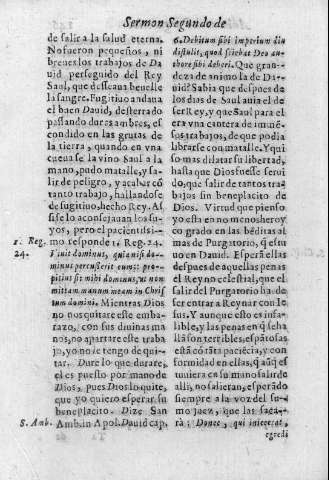 Sermon Segundo de
de salir a la salud eterna.
No fueron pequeños, ni
breues los trabajos de Da
uid perseguido del Rey
Saul, que desseaua beuelle
la sangre. Fugitiuo andaua
el buen Dauid, desterrado
passando duras pobres, es
condido en las grutas de
la tierra, quando en vna
cueua se la vino Saul a la
mano, pudo matalle, y sa-
lir de peligro, y acabar cō
tanto trabajo, hallandose
de fugitiuo, hecho Rey. As
si se lo aconsejauan los su-
yos, pero el pacientissi-
mo responde 1. Reg. 24.
1. Reg.
24.
Viuit dominus, quia nisi do-
minus percusserit eum: pro-
pitius sit mihi dominus, ut non
mittam manum meam in Chris
tum domini. Mientras Dios
no nos quitare este emba-
razo, con sus diuinas ma
nos, no apartare este traba
jo, yo no le tengo de qui-
tar. Dure lo que durare,
el es puesto por mano de
Dios, pues Dios lo quite,
que yo quiero esperar su
beneplacito. Dize San
S. Amb.
Amb. in Apol. Dauid cap.
6. Debitum sibi imperium diu
distulit, quod sciebat Deo au-
thore sibi deberi. Que gran-
deza de animo la de Da-
uid? Sabia que despues de
los dias de Saul auia el de
ser Rey, y que Saul para el
era vna cantera de immē-
sus trabajos, de que podia
librarse con matalle. Y qui
so mas dilatar su libertad,
hasta que Dios fuesse serui
do, que salir de tantos tra-
bajos sin beneplacito de
Dios. Virtud que pienso
yo esta en no menos heroy
co grado en las bēditas al
mas de Purgatorio, q̄ estu
uo en Dauid. Esperā ellas
despues de aquellas penas
el Reyno celestial, que el
salir del Purgatorio ha de
ser entrar a Reynar con Ie-
sus. Y aunque esto es infa-
lible, y las penas en q̄ se ha
llā son terribles, es pātosa es
esta cōstāte paciēcia, y con
formidad en ellas, q̄ aūq̄ es
tuuiera en su mano salir de
alli, no salieran, esperādo
siempre a la voz del su-
mo juez, que las saca-
rà: Donec, qui iniecerat,
egredi